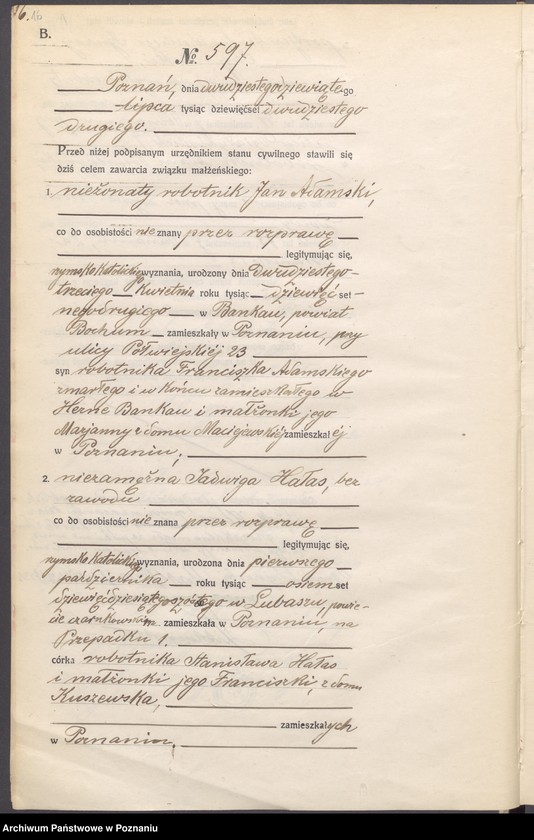 16. 16
B.
No. 597.
Poznań, dnia dwudziestegodziewiątego
lipca tysiąc dziewięćset dwudziestego
drugiego.
Przed niżej podpisanym urzędnikiem stanu cywilnego stawili się
dziś celem zawarcia związku małżeńskiego:
1. nieżonaty robotnik Jan Adamski,
co do osobistości nieznany przez rozprawę
legitymując się,
rzymsko katolickiego wyznania, urodzony dnia dwudziestego-
trzeciego kwietnia roku tysiąc dziewięćset-
negodrugiego w Bankau, powiat
Bochum zamieszkały w Poznaniu, przy
ulicy Półwiejskiéj 23
syn robotnika Franciszka Adamskiego
zmarłego i w końcu zamieszkałego w
Herne Bankau i małżonki jego
Marjanny z domu Maciejewskiéj zamieszkałéj
w Poznaniu;
2. niezamężna Jadwiga Hałas, bez
zawodu
co do osobistości nieznana przez rozprawę
legitymując się,
rzymsko katolickiego wyznania, urodzona dnia pierwszego
października roku tysiąc osiemset
dziewięćdziesiątegoszóstego w Lubaszu, powie-
cie czarnkowskim zamieszkała w Poznaniu, na
Przepadku 1.
córka robotnika Stanisława Hałas
i małżonki jego Franciszki, z domu
Kuszewska,
zamieszkałych
w Poznaniu,
Archiwum Państwowe w Poznaniu